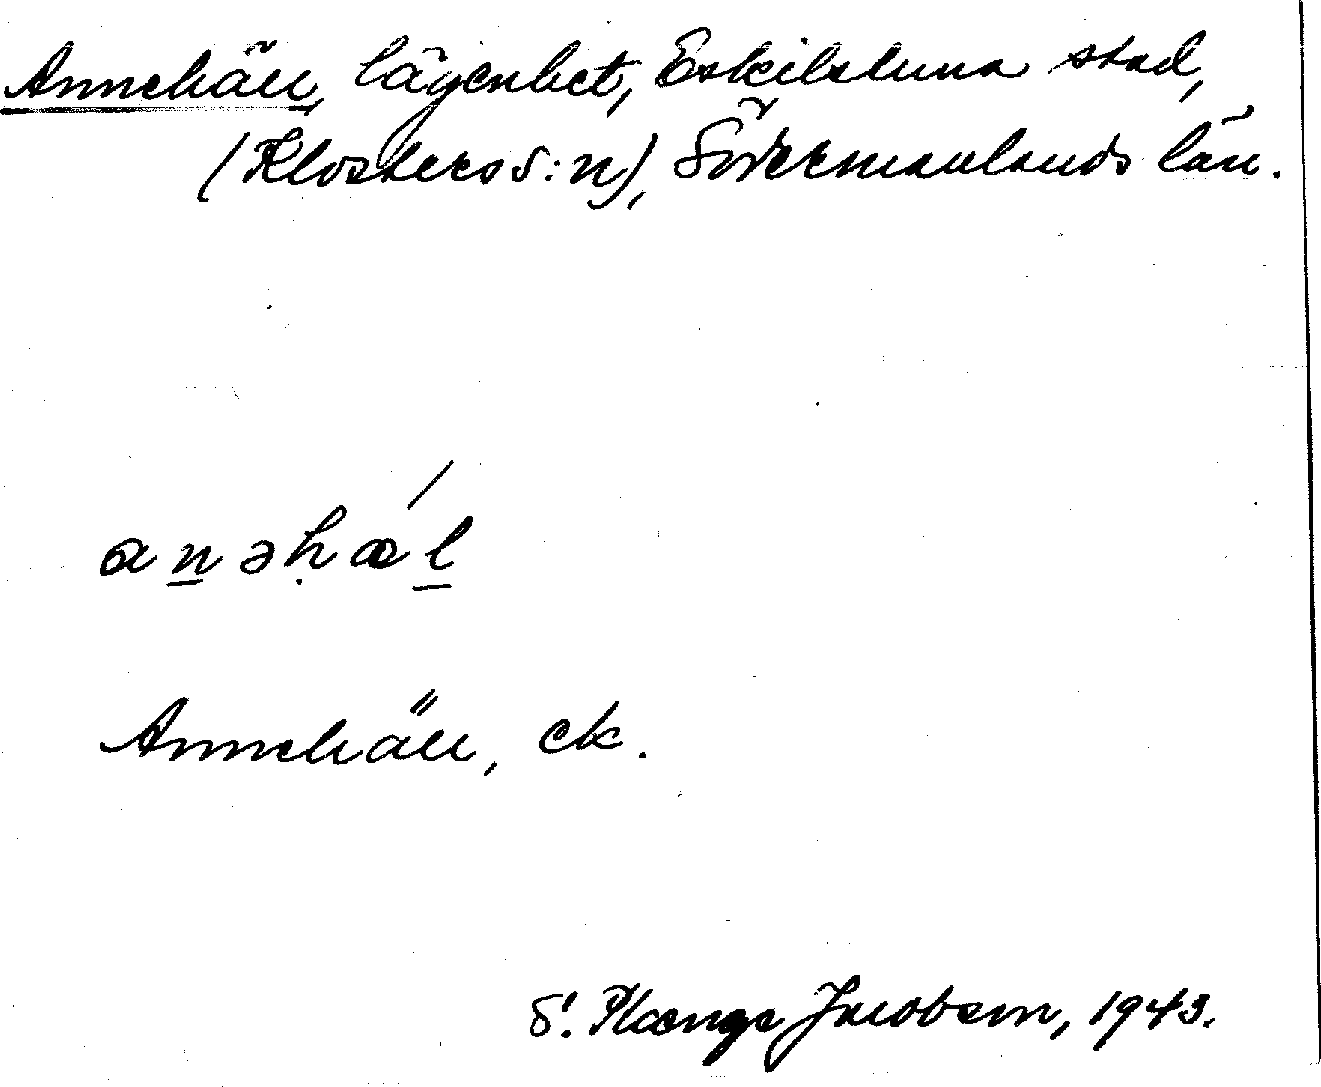 Annehäll, lägenhet, Eskilstuna stad,
(Klosters s:n), Södermanlands län.
anəhǽl
Annehäll, ek.
S. Plænge Jacobson, 1943.